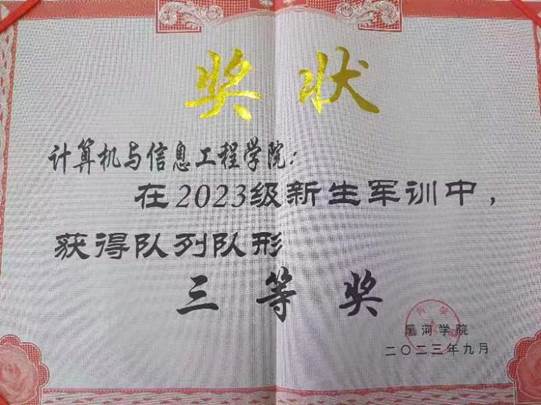 奖状
计算机与信息工程学院：
在2023级新生军训中，
获得队列队形
三等奖
黑河学院
二〇二三年九月